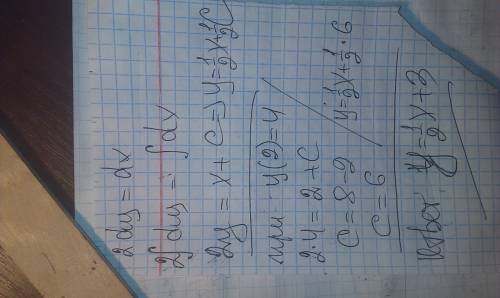 2dy = dx
2∫dy = ∫dx
2y = x + C => y = 1/2 x + 1/2 C
при: y(2) = 4
2·4 = 2 + C
C = 8 - 2 / y = 1/2 x + 1/2 · 6
C = 6
Ответ: y = 1/2 x + 3